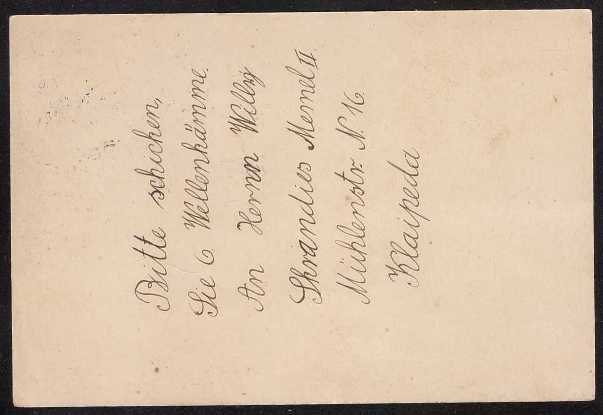 Bitte schicken,
Sie 6 Wellenhämme.
An Herrn Willy
Skrandies Memel II
Mühlenstr. N. 16
Klaipeda